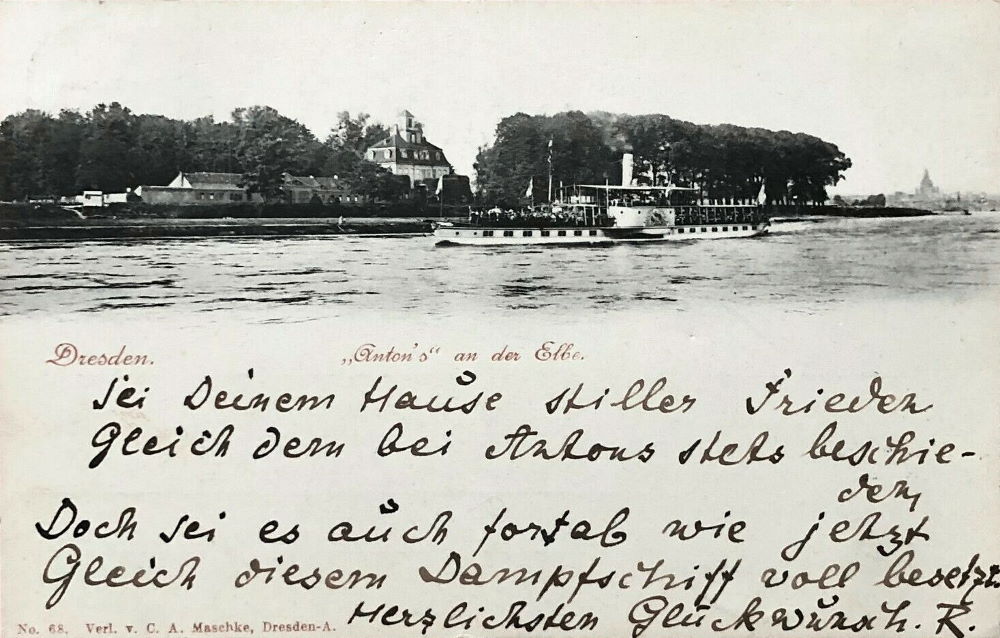 Dresden. „Anton's“ an der Elbe.
Sei Deinem Hause stiller Frieden
Gleich dem bei Antons stets beschie-
den,
Doch sei es auch fortab wie jetzt
Gleich diesem Dampfschiff voll besetzt.
Herzlichsten Glückwunsch. R.
No. 68. Verl. v. C. A. Maschke, Dresden-A.